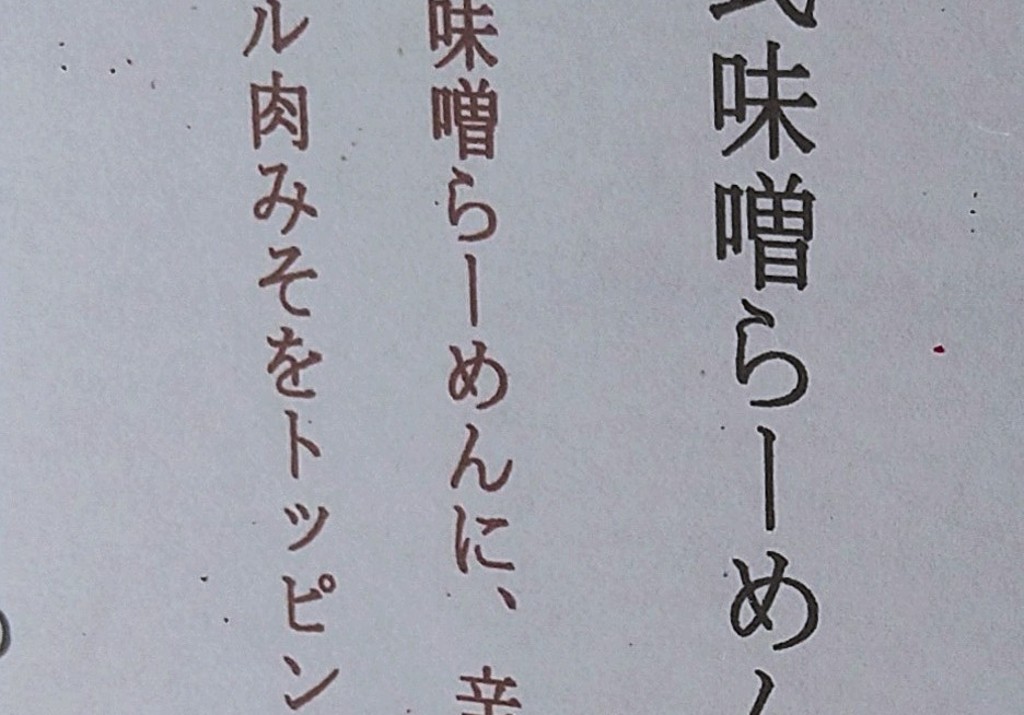 味噌らーめん
味噌らーめんに、辛
ル肉みそをトッピン